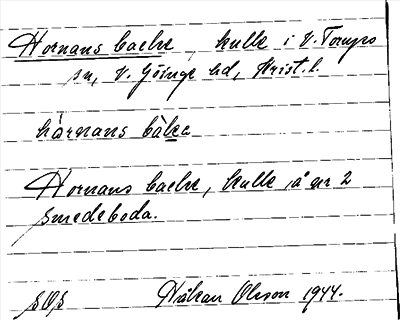 Hornans backe, kulle i V. Torups
sn, V. Göinge hd, Krist. l.
hörnans bàka
Hornans backe, kulle, å gr 2
Smedeboda.
SOS Håkan Olsson 1944.